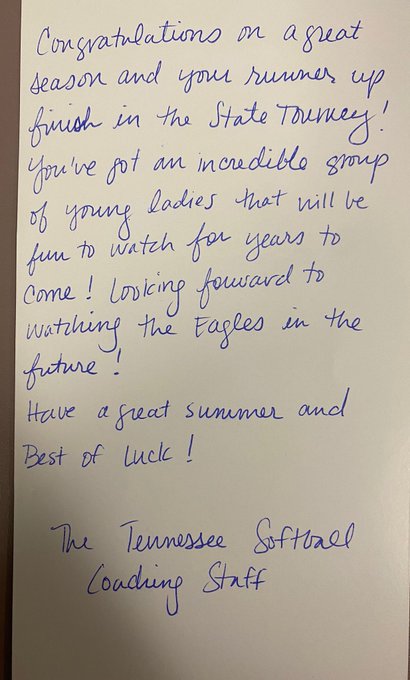 Congratulations on a great
season and your runner up
finish in the State Tourney!
You've got an incredible group
of young ladies that will be
fun to watch for years to
come! Looking forward to
watching the Eagles in the
future!
Have a great summer and
Best of Luck!
The Tennessee Softball
Coaching Staff